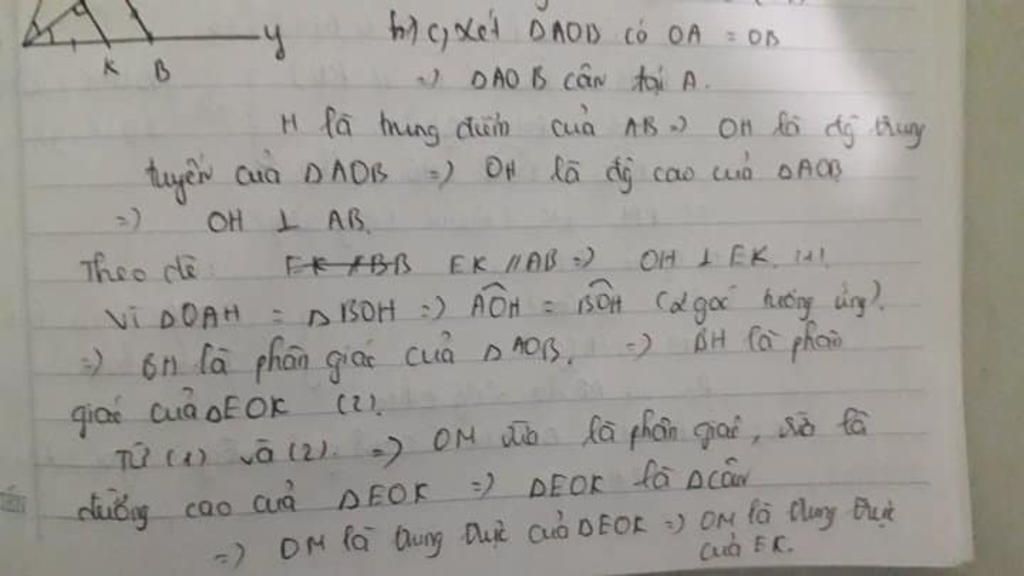 y
K B
b) c, Xét ΔAOB có OA = OB
=> ΔAOB cân tại A.
H là trung điểm của AB => OH là đg trung
tuyến của ΔAOB => OH là đg cao của ΔAOB
=> OH ⊥ AB.
Theo đề EK // AB => OH ⊥ EK. (1).
Vì ΔOAH = ΔBOH => AÔH = BÔH (2 góc tương ứng).
=> BH là phân giác của ΔAOB. => BH là phân
giác của ΔEOK (2).
Từ (1) và (2). => OM vừa là phân giác, vừa là
đường cao của ΔEOK => ΔEOK là Δcân
=> OM là trung trực của ΔEOK => OM là trung trực
của EK.